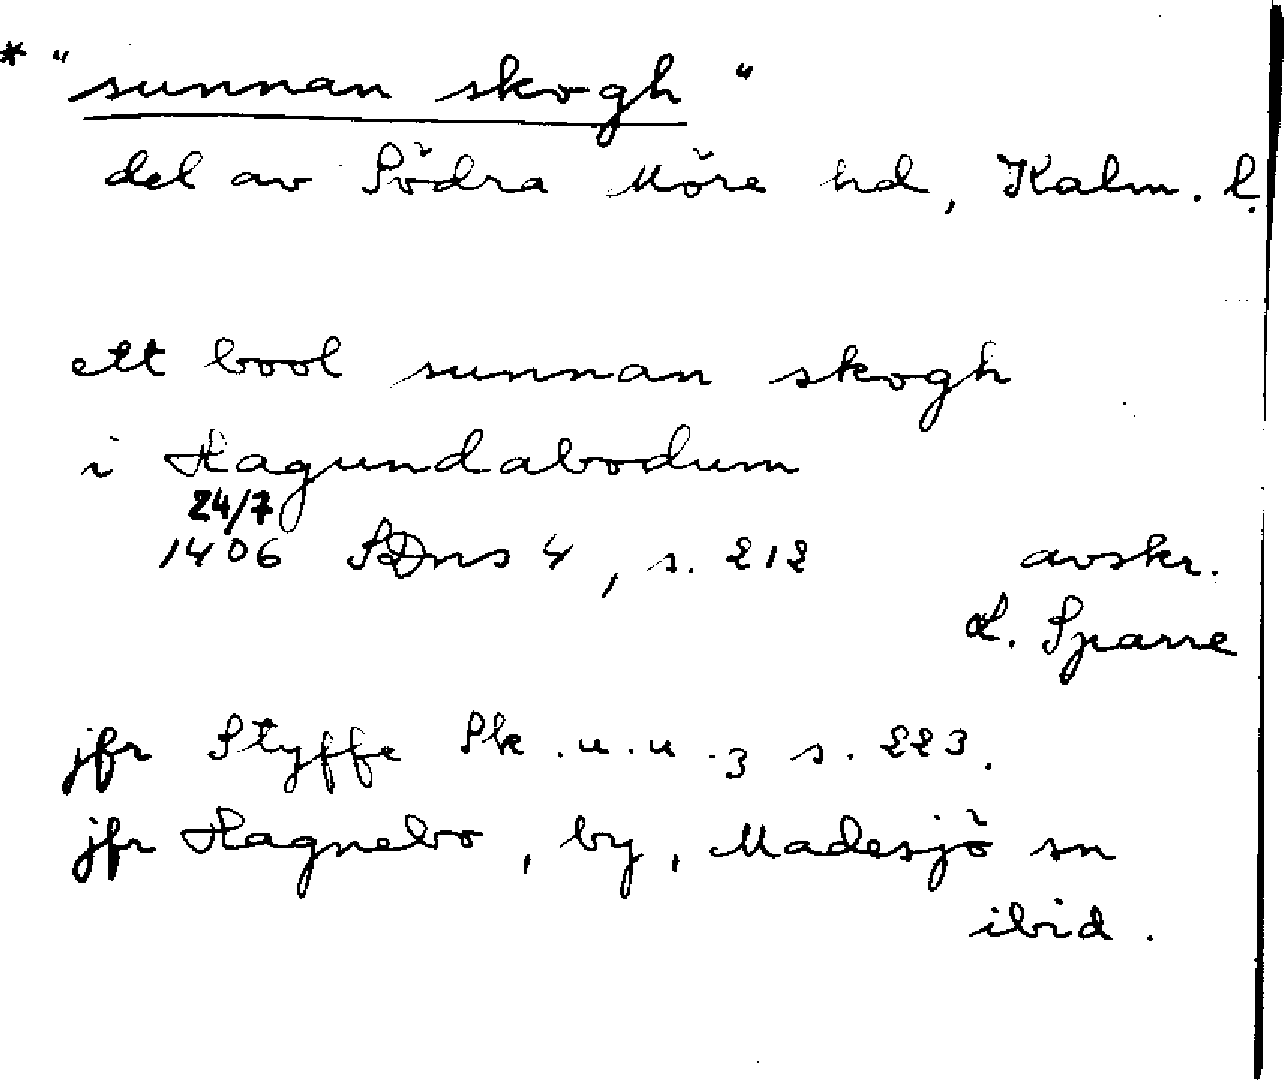 * "sunnan skogh"
del av Södra Möre hd, Kalm. l.
ett bool sunnan skogh
i Hagundabodum
24/7
1406 SDns 4, s. 212 avskr.
L. Sparre
jfr Styffe Sk.u.u.3 s. 223.
jfr Hagnebo, by, Madesjö sn
ibid.